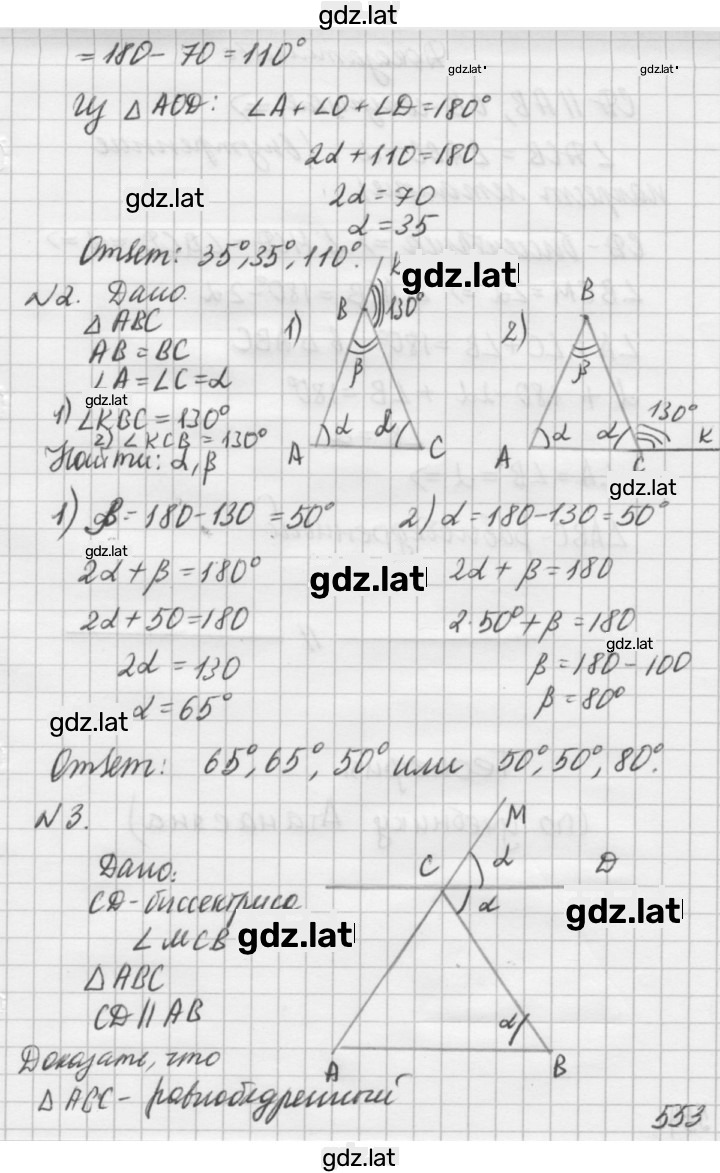 gdz.lat
= 180 - 70 = 110°
gdz.lat gdz.lat
из △ AOD: ∠A + ∠O + ∠D = 180°
2α + 110 = 180
gdz.lat 2α = 70
α = 35
Ответ: 35°, 35°, 110°.
gdz.lat
N2. Дано.
△ ABC
AB = BC
∠A = ∠C = α
gdz.lat
1) ∠KBC = 130°
2) ∠KCB = 130°
Найти: α, β
1) K B 130° β α α A C
2) B β 130° α α A C K
gdz.lat
1) β = 180 - 130 = 50°
gdz.lat
2α + β = 180°
2α + 50 = 180
2α = 130
α = 65°
gdz.lat
2) α = 180 - 130 = 50°
2α + β = 180
2·50° + β = 180
gdz.lat
β = 180 - 100
β = 80°
gdz.lat
Ответ: 65°, 65°, 50° или 50°, 50°, 80°.
N3.
Дано:
CD - биссектриса
∠MCB gdz.lat
△ ABC
CD || AB
Доказать, что
△ ABC - равнобедренный
M
C α D
α
gdz.lat
α
A B
553
gdz.lat